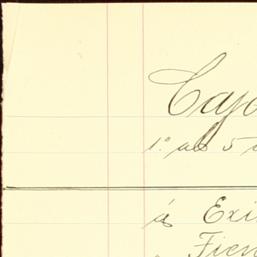 Cajo
1º al 5
á Exi
Fien